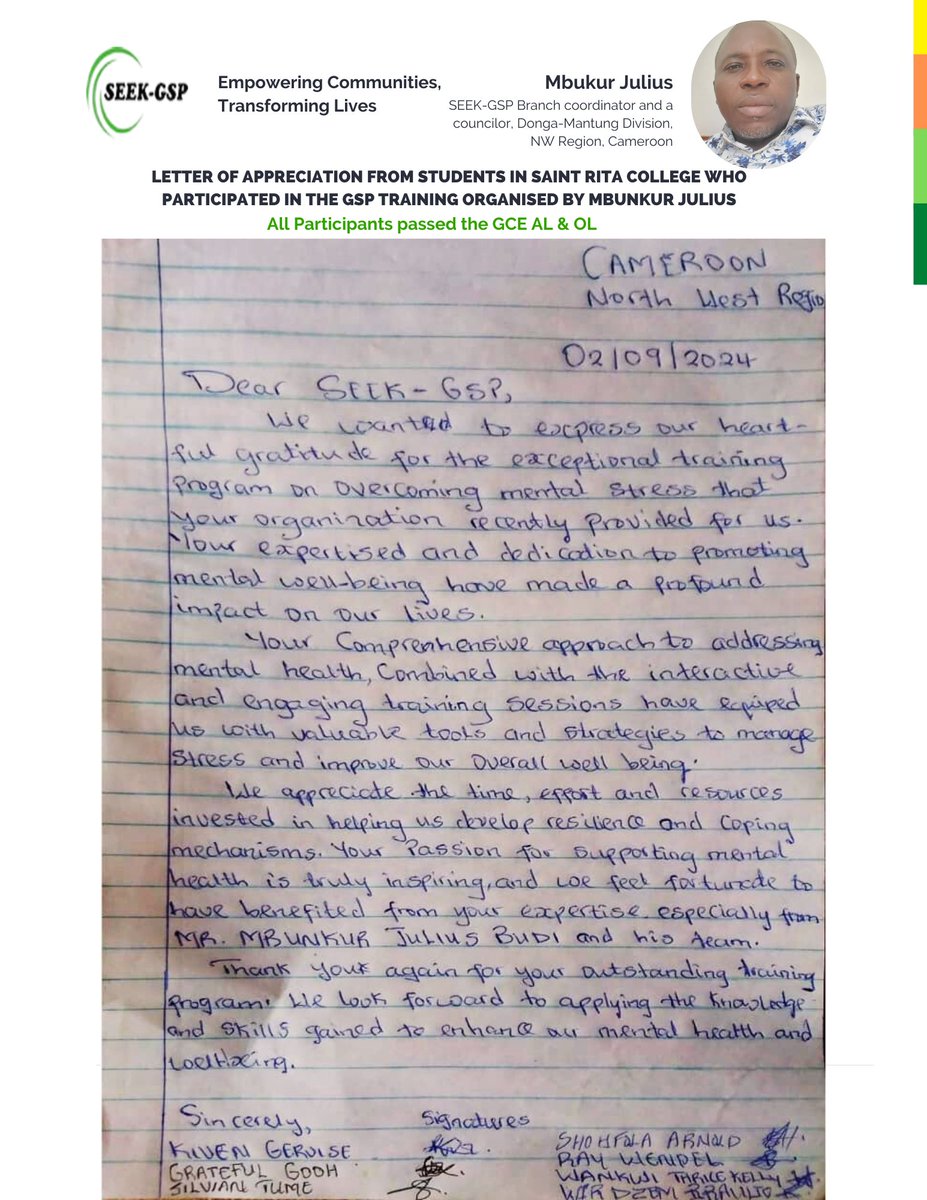 SEEK-GSP
Empowering Communities,
Transforming Lives
Mbukur Julius
SEEK-GSP Branch coordinator and a
councilor, Donga-Mantung Division,
NW Region, Cameroon
LETTER OF APPRECIATION FROM STUDENTS IN SAINT RITA COLLEGE WHO
PARTICIPATED IN THE GSP TRAINING ORGANISED BY MBUNKUR JULIUS
All Participants passed the GCE AL & OL
CAMEROON
North West Regio
02/09/2024
Dear SEEK-GSP,
We wanted to excpress our heart-
ful gratitude for the exceptional training
Program on overcoming mental stress that
your organization recently Provided for us.
Your expertised and dedication to promoting
mental well-being have made a profound
impact on our lives.
Your Comprenhensive approach to addressing
mental health, Combined with the interactive
and engaging training sessions have equiped
us with valuable tools and strategies to manage
Stress and improve our overall well being.
We appreciate the time, effort and resources
invested in helping us develop resilience and coping
mechanisms. Your Passion for supporting mental
health is truly inspiring, and we feel fortunate to
have benefited from your expertise especially from
MR. MBUNKUR JULIUS BUDI and his team.
Thank you again for your outstanding training
program. We look forward to applying the knowledge
and skills gained to enhance our mental health and
wellbeing.
Sincerely,
Signatures
KIVEN GERVISE
GRATEFUL GODH
SILVIAN TUME
ARNOLD
RAY WENDEL
WANKWI THRICE KELLY